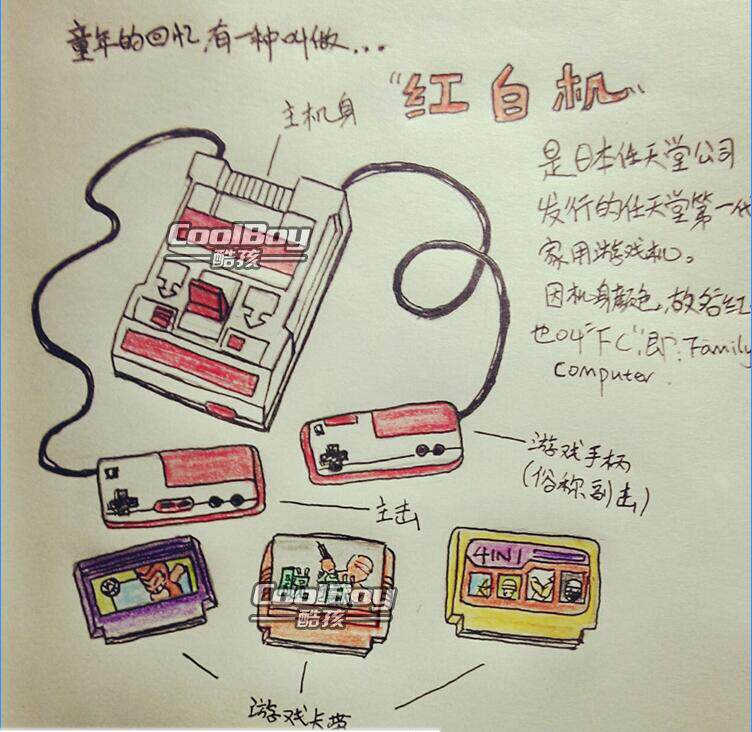 童年的回忆,有一种叫做...
"红白机"
主机身
是日本任天堂公司
发行的任天堂第一代
家用游戏机。
因机身颜色,故名红
也叫"FC",即:Family
Computer.
CoolBoy
酷孩
游戏手柄
(俗称副击)
主击
4IN1
CoolBoy
酷孩
游戏卡带